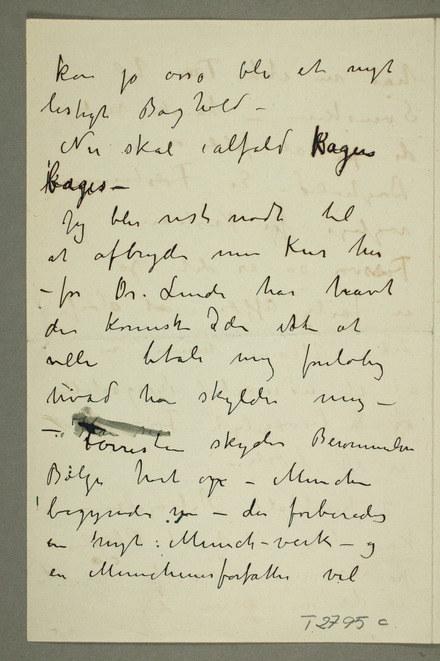 kan jo også bli et nyt
lystigt Baghold –
Nu skal ialfald Kagen
bages –
Jeg blir visst nødt til
at afbryde min Kur her
– for Dr. Linde har havt
den komiske Ide ikke at
ville betale mig foreløbig
hvad han skylder mig –
– skyder Berømmelsens
Bølge høit op – München
begynder nu – der forberedes
en nyt: Munch-verk – og
en Münchenerforfatter vil
T 2795 c